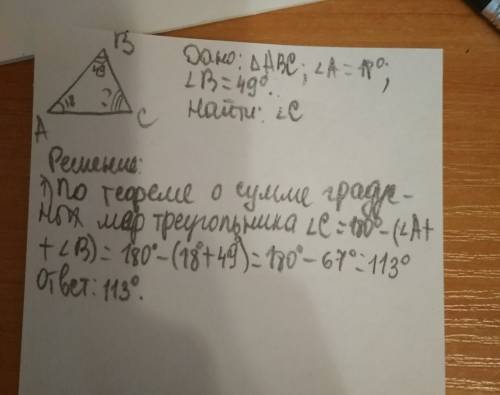 B
49
18
?
A
C
Дано: △ABC; ∠A=18°;
∠B=49°.
Найти: ∠C
Решение:
1) По теореме о сумме градус-
ных мер треугольника ∠C=180°-(∠A+
+∠B)=180°-(18°+49°)=180°-67°=113°
Ответ: 113°.